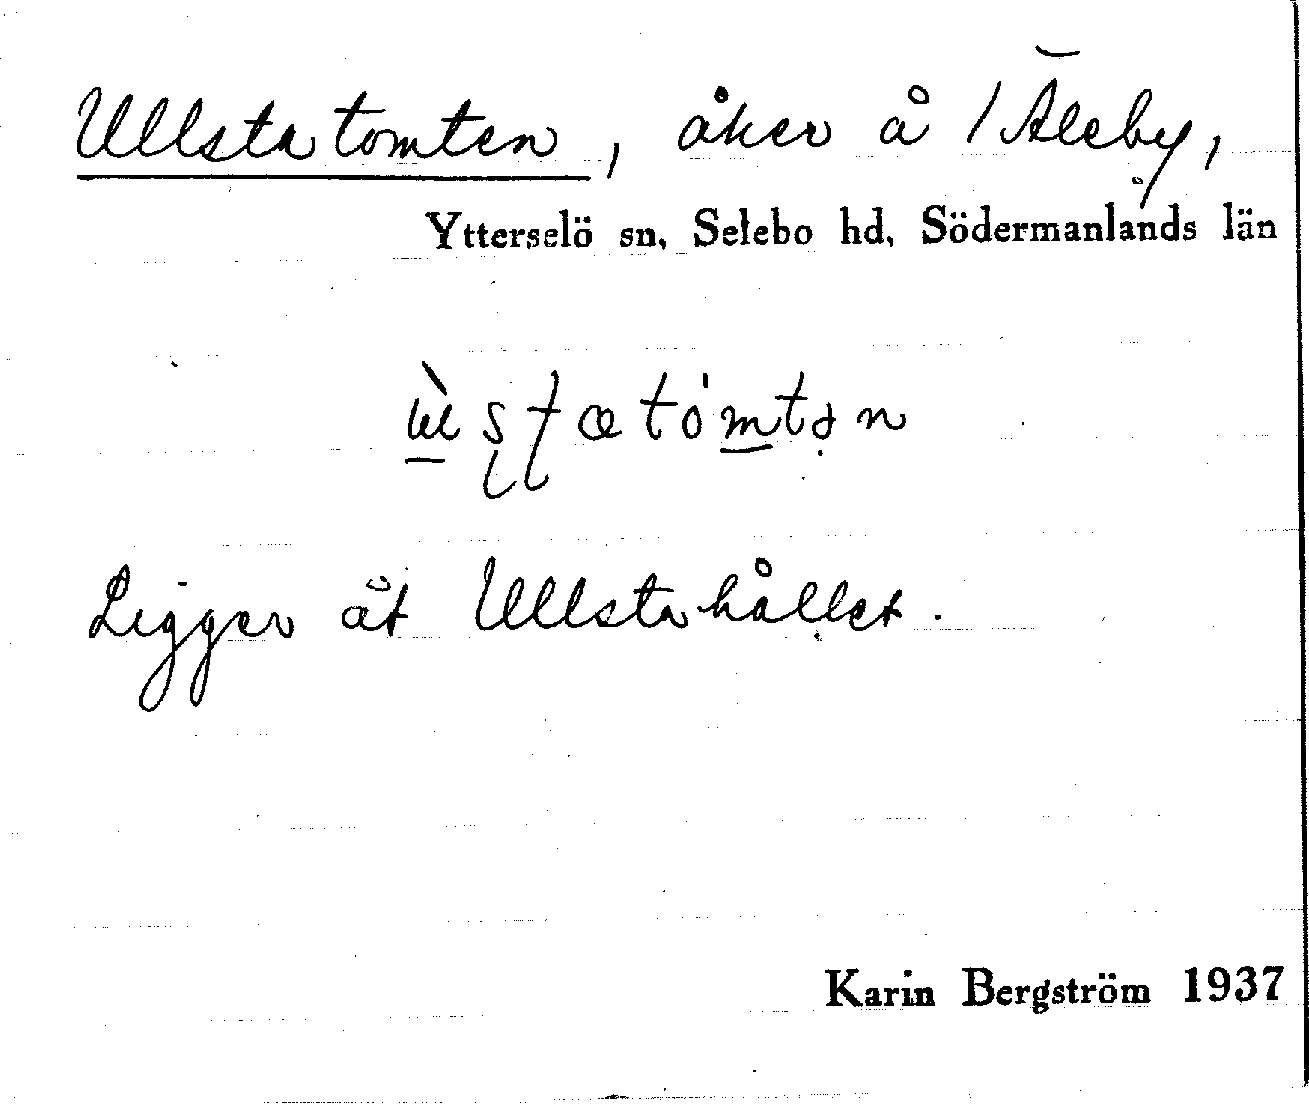 Ullstatomten, åker å 1 Åleby,
Ytterselö sn, Selebo hd, Södermanlands län
Ligger åt Ullstahållet.
Karin Bergström 1937